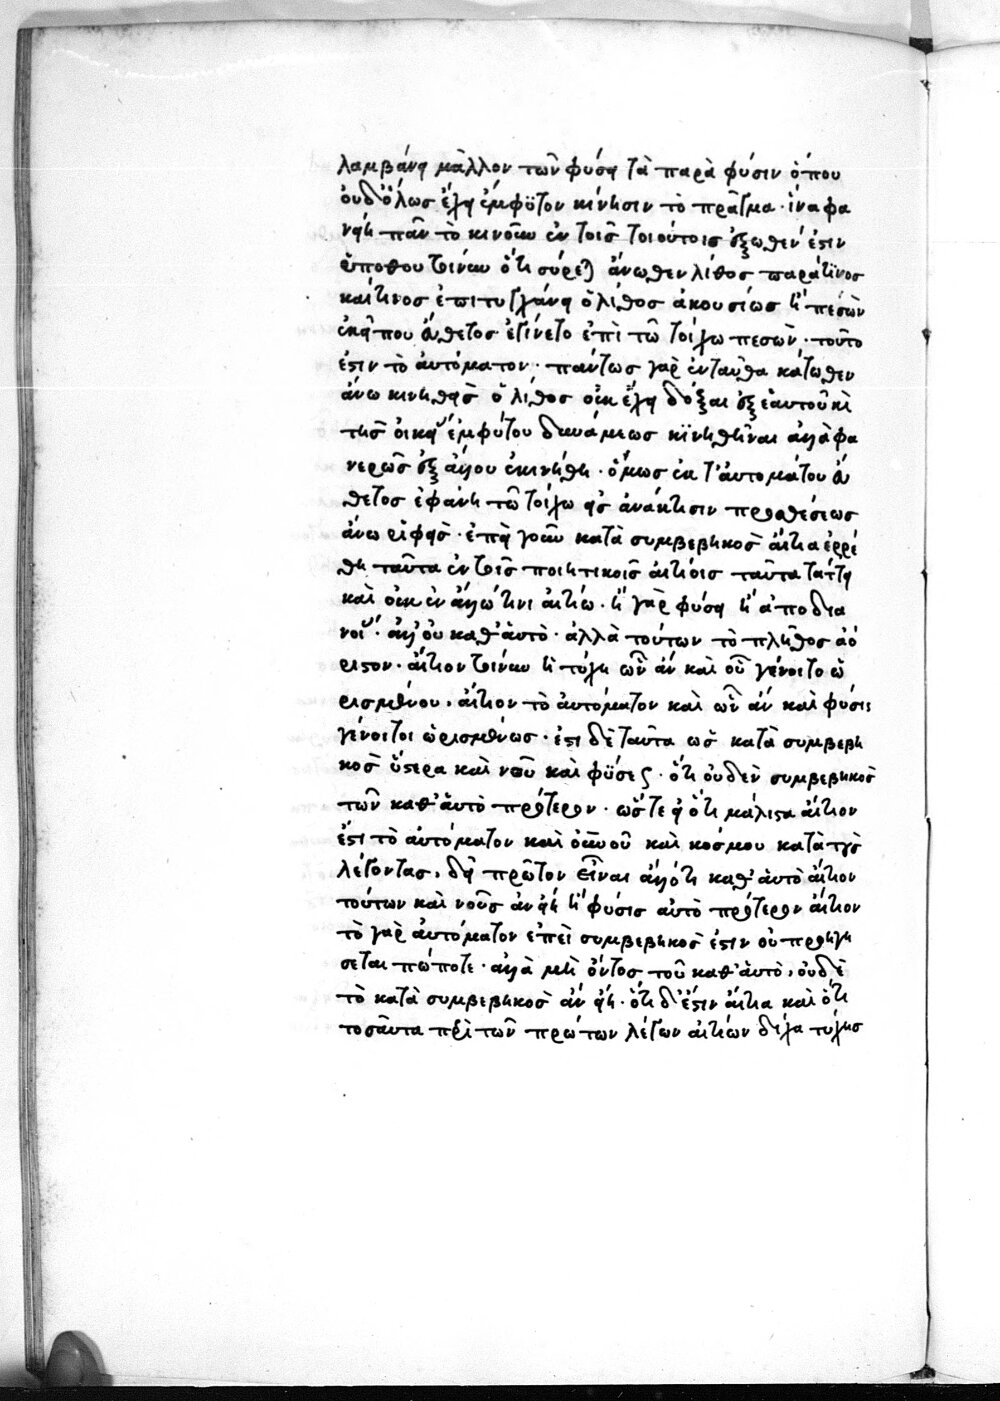 λαμβάνει μᾶλλον τῶν φύσει τὰ παρὰ φύσιν ὁπου
οὐδόλως ἔχει ἐμφϋτον κίνησιν τὸ πρᾶγμα · ἵνα φα
νείη πᾶν τὸ κινοῦν ἐν τοῖς τοιούτοις ἔξωθεν ἐστιν
ὑποθου τοίνυν ὅτι σύρεται ἄνωθεν λίθος παρά τϊνος
καί τινος ἐπιτυγχάνει ὁ λίθος ἀκουσίως ἢ πεσὼν
ἐκεῖ που εὔθετος ἐγίνετο ἐπὶ τῶ τοίχω πεσὼν · τοῦτο
ἐστιν τὸ ἀυτόματον · πάντως γὰρ ἐνταῦθα κάτωθεν
ἄνω κινηθεὶς ὁ λίθος οὐκ ἔχει δόξαι ἐξ ἑαυτοῦ κὶ
τῆς οἰκείου ἐμφύτου δυνάμεως κϊνηθῆναι ἀλλὰ φα
νερῶς ἐξ ἄλλου ἐκινήθη · ὅμως ἐκ τ' ἀυτομάτου εὔ
θετος ἐφάνη τῶ τοίχω εἰς ἀνάκτησιν προθέσεως
ἄνω ριφεὶς · ἐπεὶ γοῦν κατὰ συμβεβηκος ἄιτια ἐρρέ
θη ταῦτα ἐν τοῖς ποιητικοῖς ἀιτίοις ταῦτα τάττει
καὶ οὐκ ἐν ἄλλω τινι ἀιτίω · ἢ γὰρ φύσει ἢ ἀπο δια
νοίου · ἀλλ' οὐ καθ' ἁυτὸ · ἀλλὰ τούτων τὸ πλῆθος ἀό
ριστον · ἄιτιον τοίνυν ἡ τύχη ὧν ἀν καὶ νοῦ γένοιτο ὡ
ρισμένου · ἄιτιον τὸ ἀυτόματον καὶ ὧν ἀν καὶ φύσις
γένοιτοι ὡρισμένως · ἐστι δὲ ταῦτα ὡς κατὰ συμβεβη
κος ὕστερα καὶ νοῦ καὶ φϋσεως · ὅτι οὐδὲν συμβεβηκος
τῶν καθ' ἁυτὸ πρότερον · ὥστε εἰ ὅτι μάλιστα ἄιτιον
ἐστι τὸ ἀυτόματον καὶ οὐνοῦ καὶ κόσμου κατὰ τοὺς
λέγοντας · δεῖ πρῶτον εἶναι ἀλλότι καθ' ἁυτὸ ἄιτιον
τούτων καὶ νοῦς ἀν εἴη ἢ φύσις αὐτὸ πρότερον ἄιτιον
τὸ γὰρ ἀυτόματον ἐπεὶ συμβεβηκος ἐστιν οὐ προηγη
σεται πώποτε · ἀλλὰ μὴ ὄντος τοῦ καθ' ἁυτὸ · οὐδὲ
τὸ κατὰ συμβεβηκος ἀν εἴη · ὅτι δ' ἐστιν ἄιτια καὶ ὅτι
τοσαῦτα περὶ τῶν πρώτων λέγων ἀιτίων δίχα τύχης